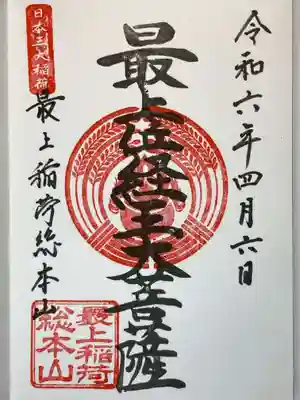 令和六年四月六日
最上位経王大菩薩
日本三大稲荷
最上稲荷総本山
最上稲荷
総本山